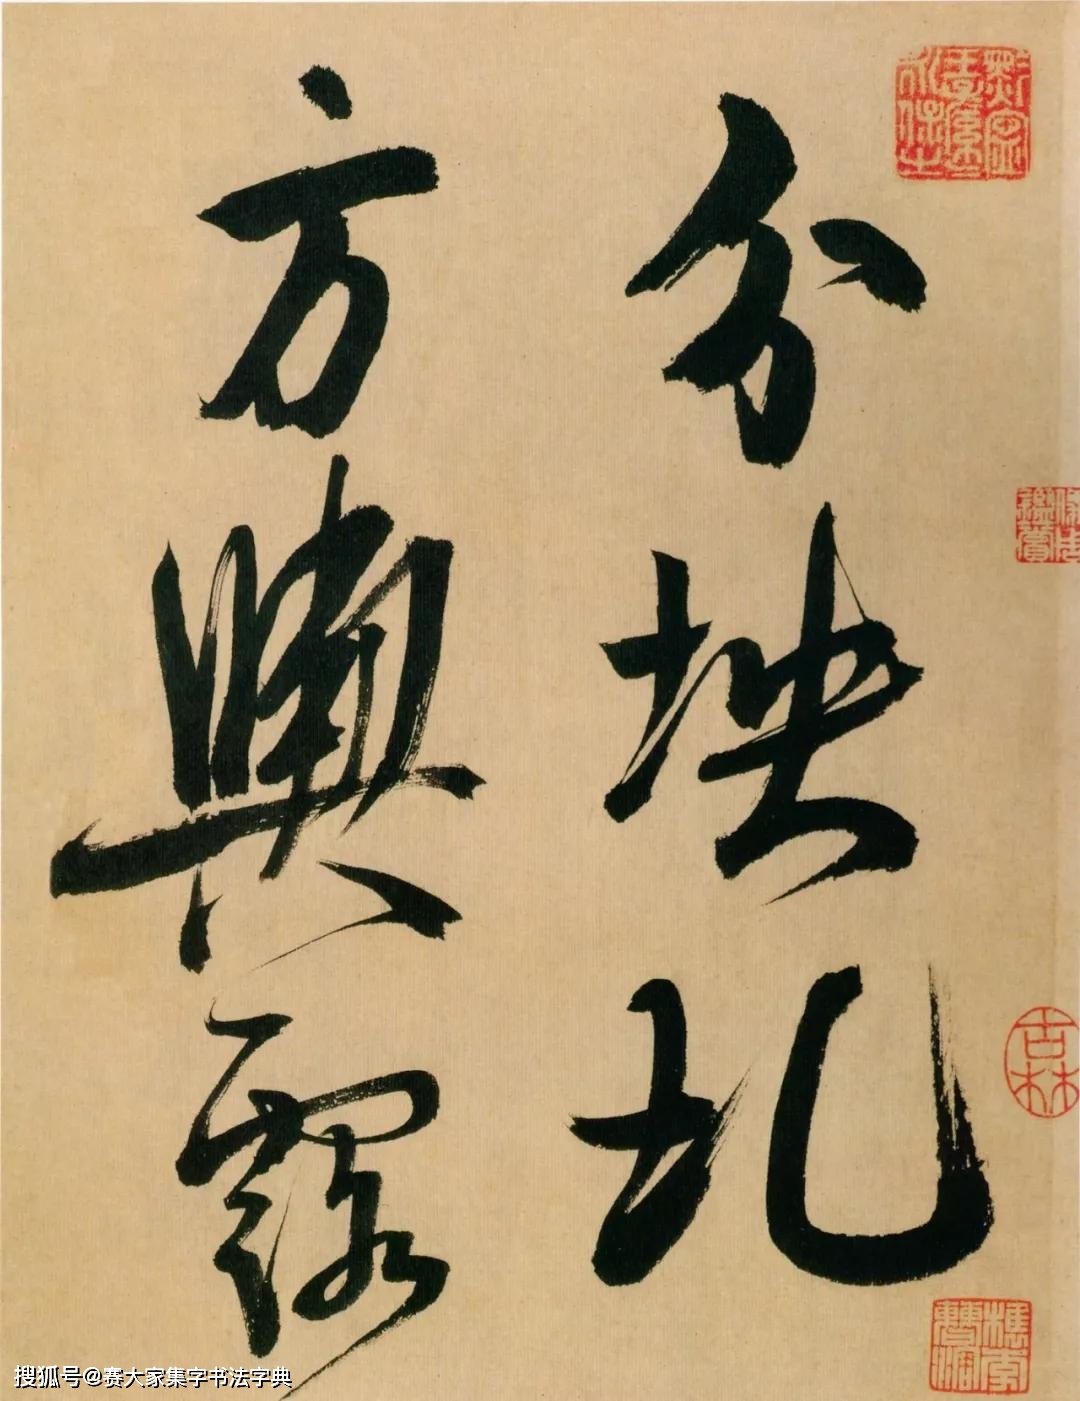 分坱圠
方輿露
搜狐号@赛大家集字书法字典